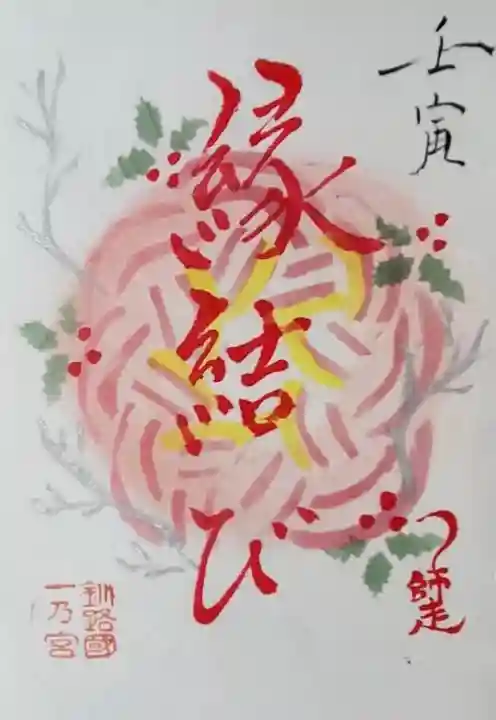 壬寅
縁結び
つ師走
釧路國
一乃宮